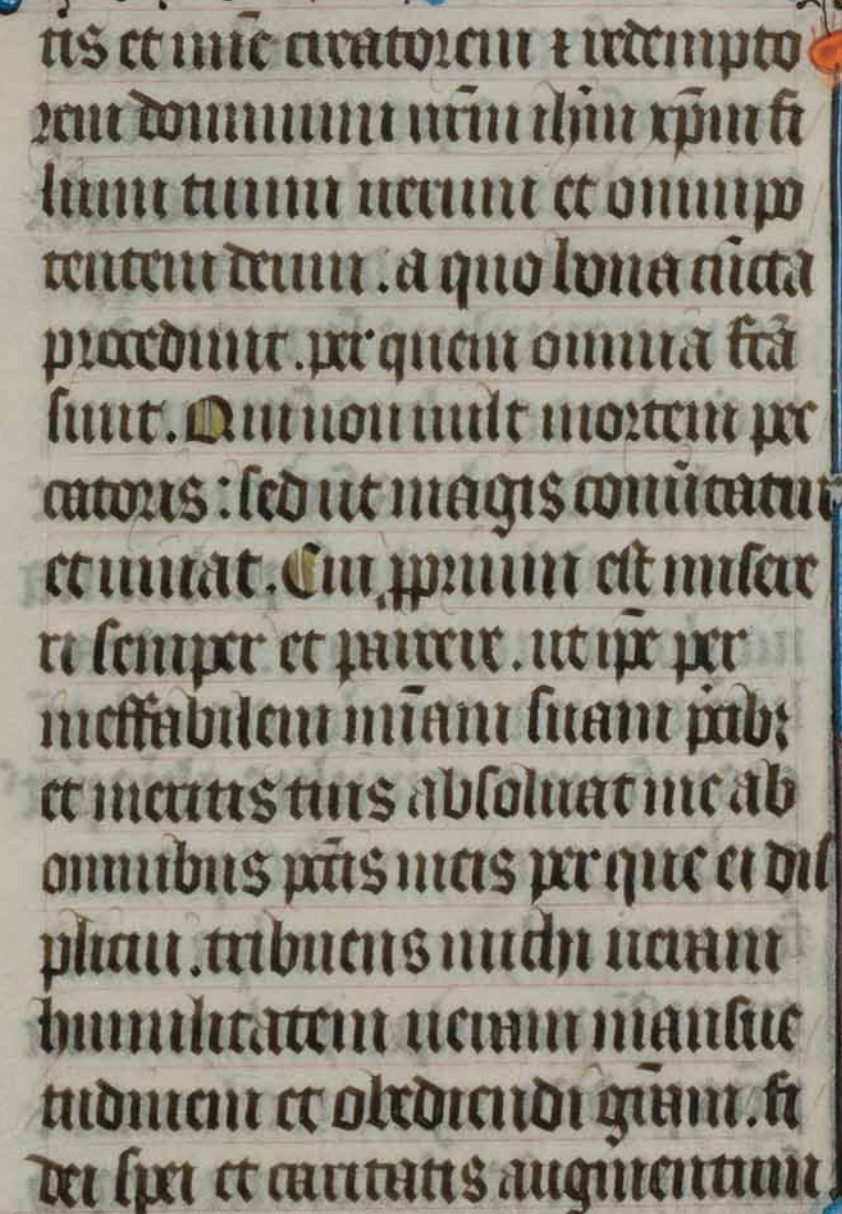 tis et miẽ creatorem ⁊ redempto
rem dominum nr̄m ihm̄ xp̄m fi
lium tuum uerum et omnipo
tentem deum . a quo bona cũcta
procedunt . per quem omnia fc̄a
sunt . Qui non uult mortem pec
catoris : sed ut magis conũtatur
et uiuat . Cui ꝓprium est misere
ri semper et parcere . ut ip̄e per
ineffabilem mīam suam p̄cibꝫ
et meritis tuis absoluat me ab
omnibus pc̄tis meis per que ei dis
plicui . tribuens michi ueram
humilitatem ueram mansue
tudinem et obediendi gr̄am . fi
dei spei et caritatis augmentum